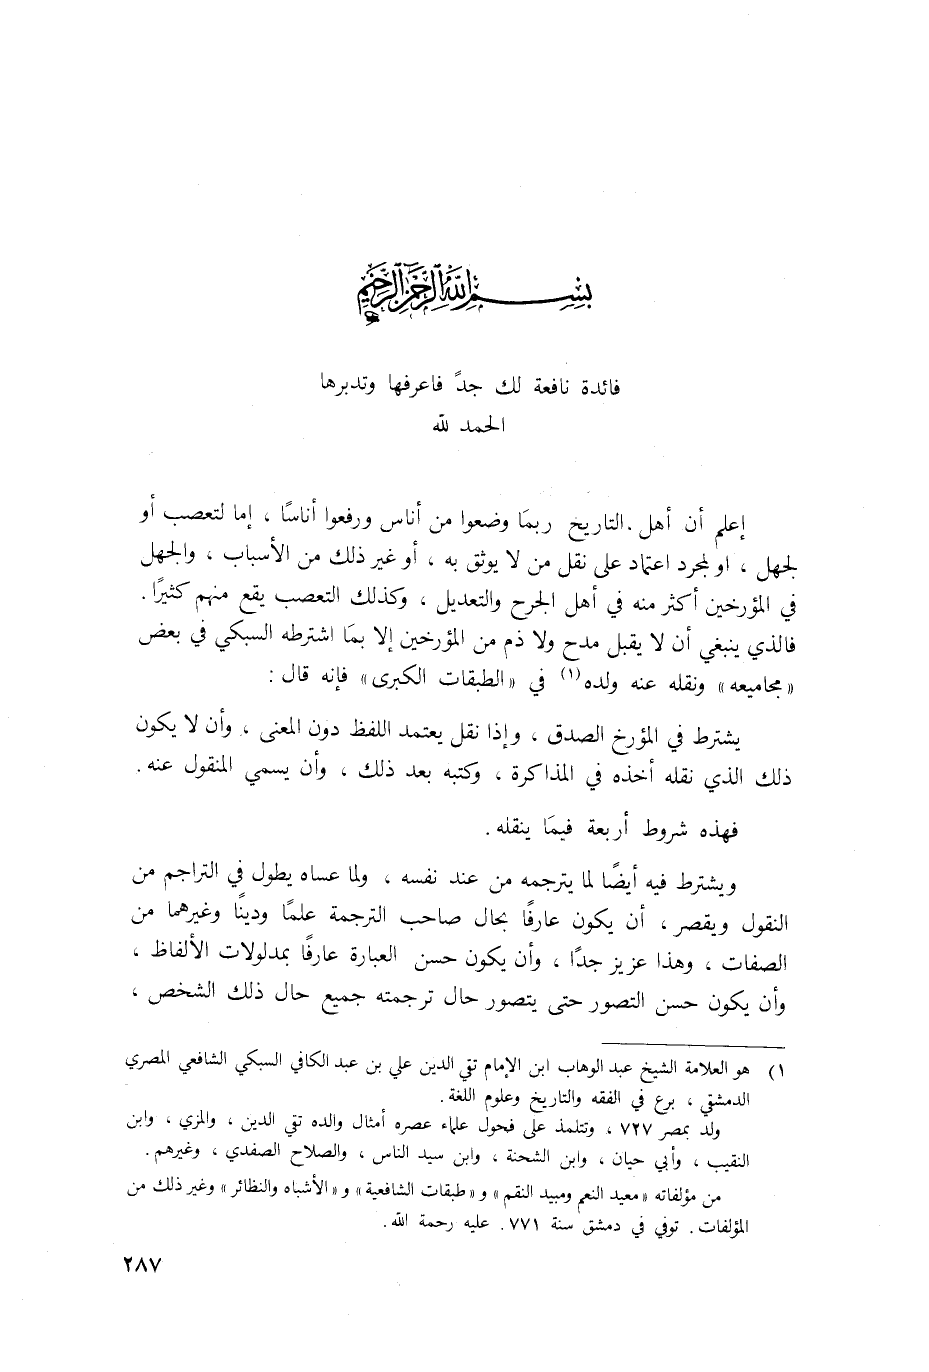 بسم الله الرحمن الرحيم
فائدة نافعة لك جداً فاعرفها وتدبرها
الحمد لله
إعلم أن أهل .التاريخ ربمَا وضعوا من أناس ورفعوا أناسًا ، إما لتعصب أو
لجهل ، او لمجرد اعتماد على نقل من لا يوثق به ، أو غير ذلك من الأسباب ، والجهل
في المؤرخين أكثر منه في أهل الجرح والتعديل ، وكذلك التعصب يقع منهم كثيرًا .
فالذي ينبغي أن لا يقبل مدح ولا ذم من المؤرخين إلا بمَا اشترطه السبكي في بعض
«مجاميعه» ونقله عنه ولده(١) في «الطبقات الكبرى» فإنه قال :
يشترط في المؤرخ الصدق ، وإذا نقل يعتمد اللفظ دون المعنى ، وأن لا يكون
ذلك الذي نقله أخذه في المذاكرة ، وكتبه بعد ذلك ، وأن يسمي المنقول عنه .
فهذه شروط أربعة فيمَا ينقله .
ويشترط فيه أيضًا لما يترجمه من عند نفسه ، ولما عساه يطول في التراجم من
النقول ويقصر ، أن يكون عارفًا بحال صاحب الترجمة علمًا ودينًا وغيرهما من
الصفات ، وهذا عزيز جدًا ، وأن يكون حسن العبارة عارفًا بمدلولات الألفاظ ،
وأن يكون حسن التصور حتى يتصور حال ترجمته جميع حال ذلك الشخص ،
١) هو العلامة الشيخ عبد الوهاب ابن الإمام تقي الدين علي بن عبد الكافي السبكي الشافعي المصري
الدمشقي ، برع في الفقه والتاريخ وعلوم اللغة .
ولد بمصر ٧٢٧ ، وتتلمذ على فحول علماء عصره أمثال والده تقي الدين ، والمزي ، وابن
النقيب ، وأبي حيان ، وابن الشحنة ، وابن سيد الناس ، والصلاح الصفدي ، وغيرهم .
من مؤلفاته «معيد النعم ومبيد النقم» و«طبقات الشافعية» و«الأشباه والنظائر» وغير ذلك من
المؤلفات . توفي في دمشق سنة ٧٧١ . عليه رحمة الله .
٢٨٧